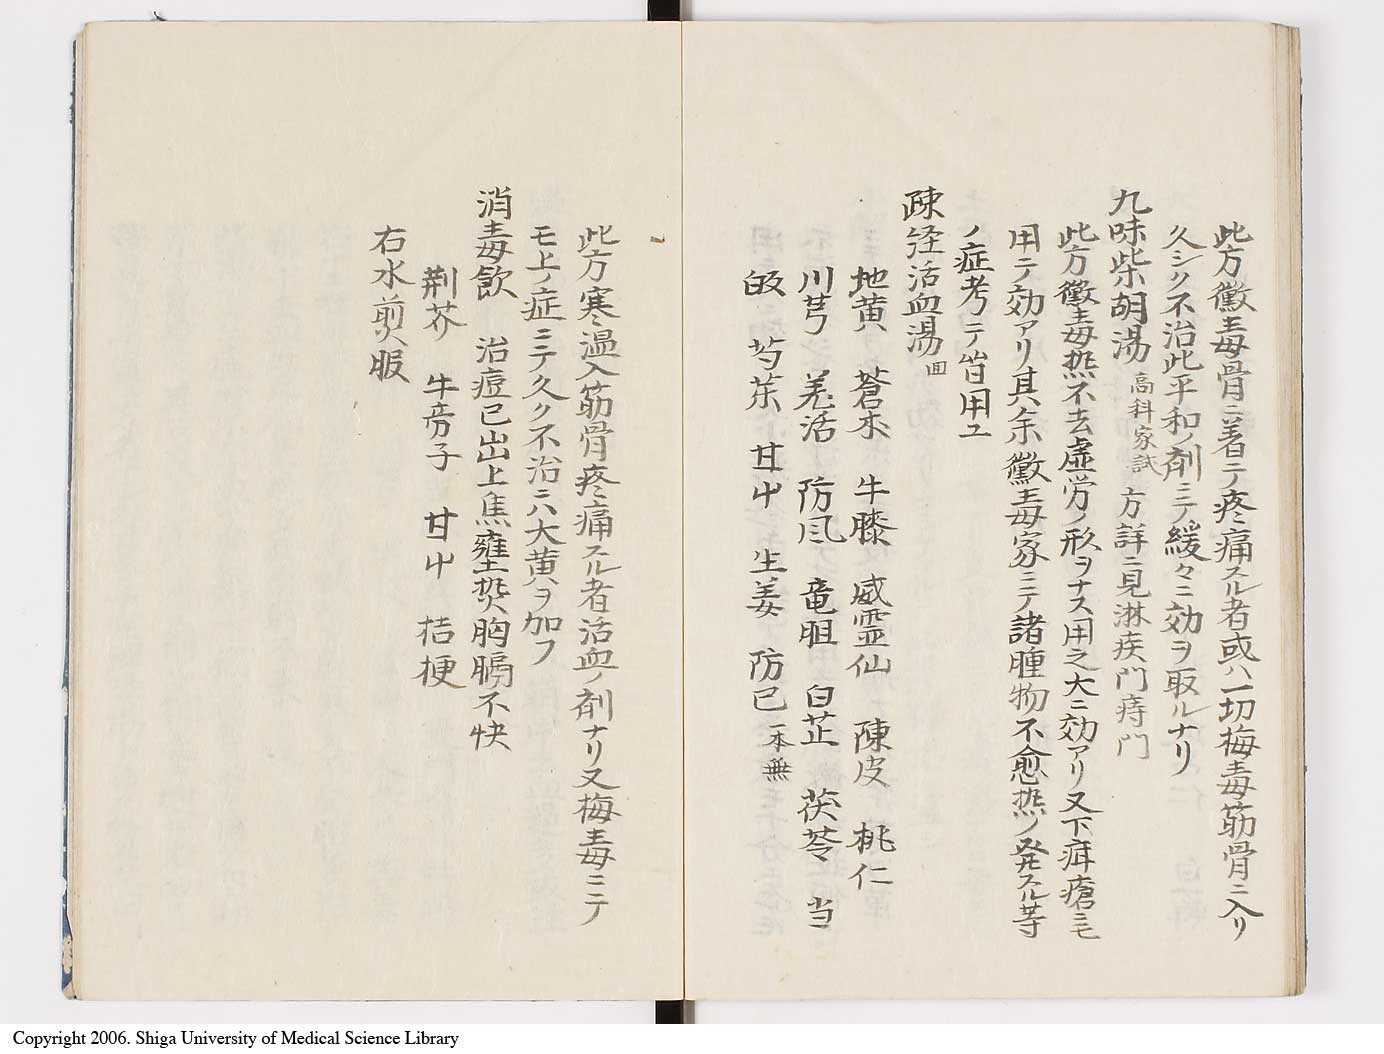 此方黴毒骨ニ著テ疼痛スル者或ハ一切梅毒筋骨ニ入リ
久シク不治此平和ノ剤ニテ緩々ニ効ヲ取ルナリ
九味柴胡湯 高科家試 方詳ニ見淋疾門痔門
此方黴毒热不去虚労ノ形ヲナス用之大ニ効アリ又下疳瘡ニモ
用テ効アリ其余黴毒家ニテ諸腫物不愈热ノ発スル等
ノ症考テ皆用ユ
疎経活血湯 回
地黄 蒼朮 牛膝 威霊仙 陳皮 桃仁
川芎 羌活 防風 竜胆 白芷 茯苓 当
皈 芍薬 甘屮 生姜 防已 一本無
此方寒温入筋骨疼痛スル者活血ノ剤ナリ又梅毒ニテ
モ上ノ症ニテ久ク不治ニハ大黄ヲ加フ
消毒飲 治痘已出上焦壅热胸膈不快
荆芥 牛旁子 甘屮 桔梗
右水煎服
Copyright 2006. Shiga University of Medical Science Library